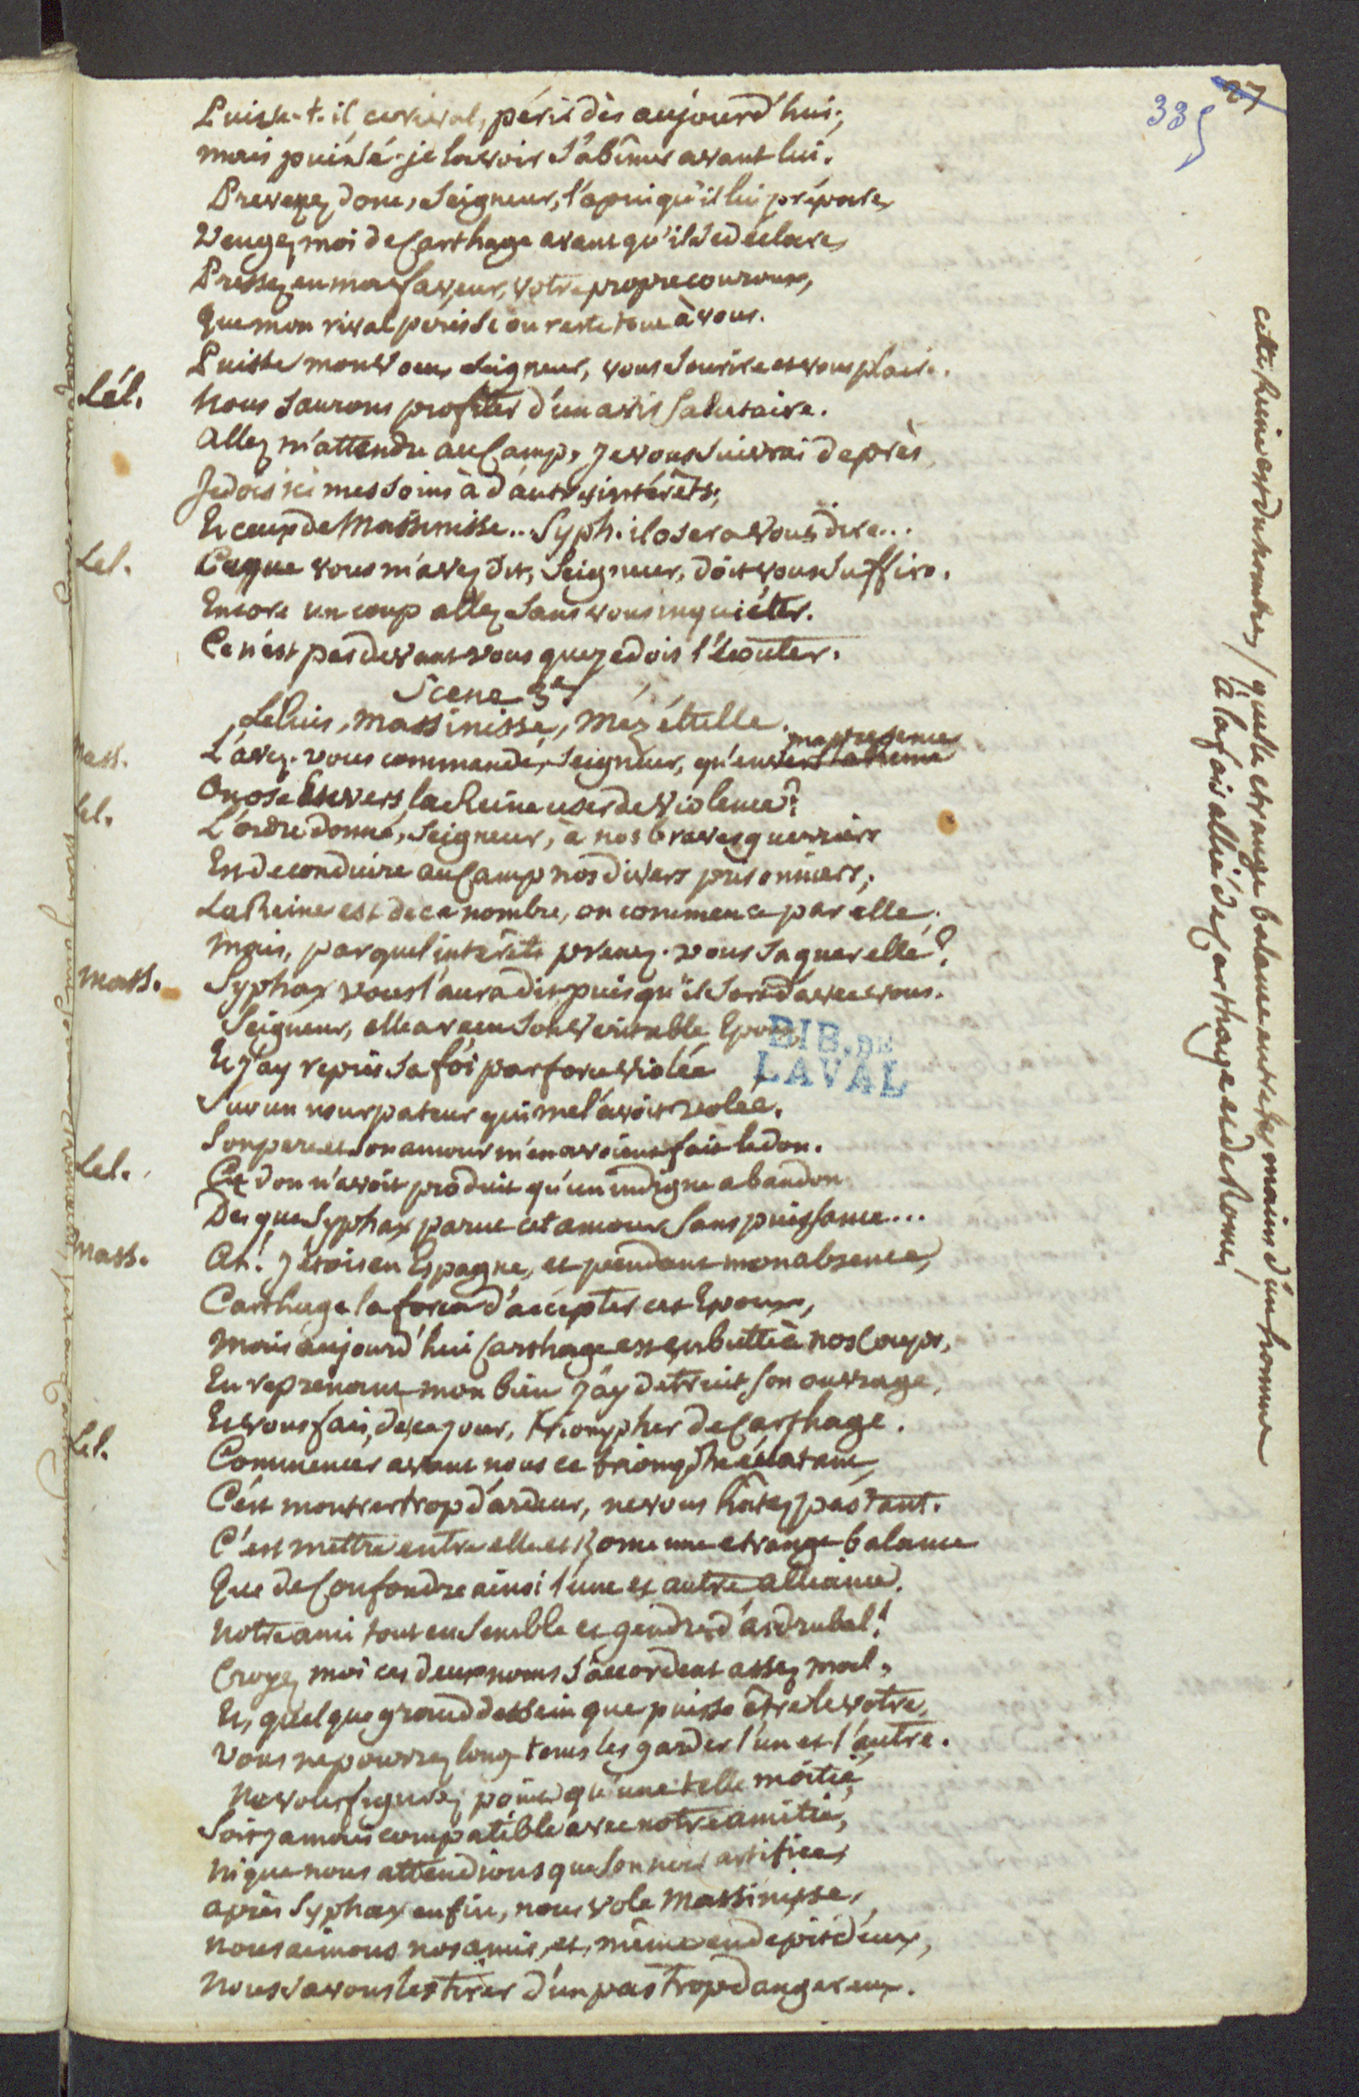 27
335
Puisse-t-il ce rival, périr dès aujourd'hui;
mais puissé-je la voir s'abîmer avant lui.
Prevenez donc, Seigneur, l'apui qu'il lui prépare,
Vengez moi de Carthage avant qu'il se declare,
Pressez en ma faveur, votre propre couroux,
Que mon rival périsse ou reste tout à vous.
Puisse mon voeu Seigneur, vous sourire et vous plaire.
Lél. Nous saurons profiter d'un avis salutaire.
Allez m'attendre au Camp, je vous suivrai de près
Je dois ici mes soins à d'autres intérêts;
Et ceux de Massinisse.. Syph. il osera vous dire...
Lel. Ce que vous m'avez dit, Seigneur, doit vous suffire.
Encore un coup allez sans vous inquiéter.
Ce n'est pas devant vous que je dois l'écouter.
Scene 3e
Lelius, Massinisse, Mézétulle.
Mass. L'avez-vous commandé, Seigneur, qu'en ma presence
On ose Envers la Reine user de violence?
Lel. L'ordre donné, Seigneur, à nos braves guerriers
Est de conduire au Camp nos divers prisonniers;
La Reine est de ce nombre, on commence par elle.
Mais, par quel intérêts prenez-vous sa querelle?
Mass. Syphax vous l'aura dit puisqu'il sort d'avec vous.
Seigneur, elle a reçu son véritable Epoux
Et j'ay repris sa foi par force violée
Sur un usurpateur qui me l'avoit volée.
Son pere et son amour m'en avoient fait le don.
Lel. Ce don n'avoit produit qu'un indigne abandon
Des que Syphax parut cet amour sans puissance...
Mass. Ah! j'étois en Espagne, et pendant mon absence,
Carthage la força d'accepter cet Epoux,
Mais aujourd'hui Carthage est en butte à nos Coups,
En reprenant mon bien j'ay détruit son ouvrage,
Et vous fais, dès ce jour, triompher de Carthage.
Lel. Commencer avant nous ce triomphe éclatant
C'est montrer trop d'ardeur, ne vous hâtez pas tant.
C'est mettre entre elle et Rome une etrange balance
Que de Confondre ainsi l'une et autre alliance.
Notre ami tout ensemble et gendre d'asdrubal!
Croyez moi ces deux noms s'accordent assez mal,
Et, quelque grand dessein que puisse être le votre
Vous ne pourrez long-tems les garder l'un et l'autre.
Ne vous figurez point qu'une telle moitié
Soit jamais compatible avec notre amitié,
Ni que nous attendions que son artifice
après Syphax enfin, nous vole Massinisse,
nous aimons nos amis, et, même en depit d'eux,
nous savons les tirer d'un pas trop dangereux.
BIB. DE
LAVAL
cette Reine est du nombre / quelle etrange balance entre les mains d'un homme
à la fois allié de Carthage et de Rome!